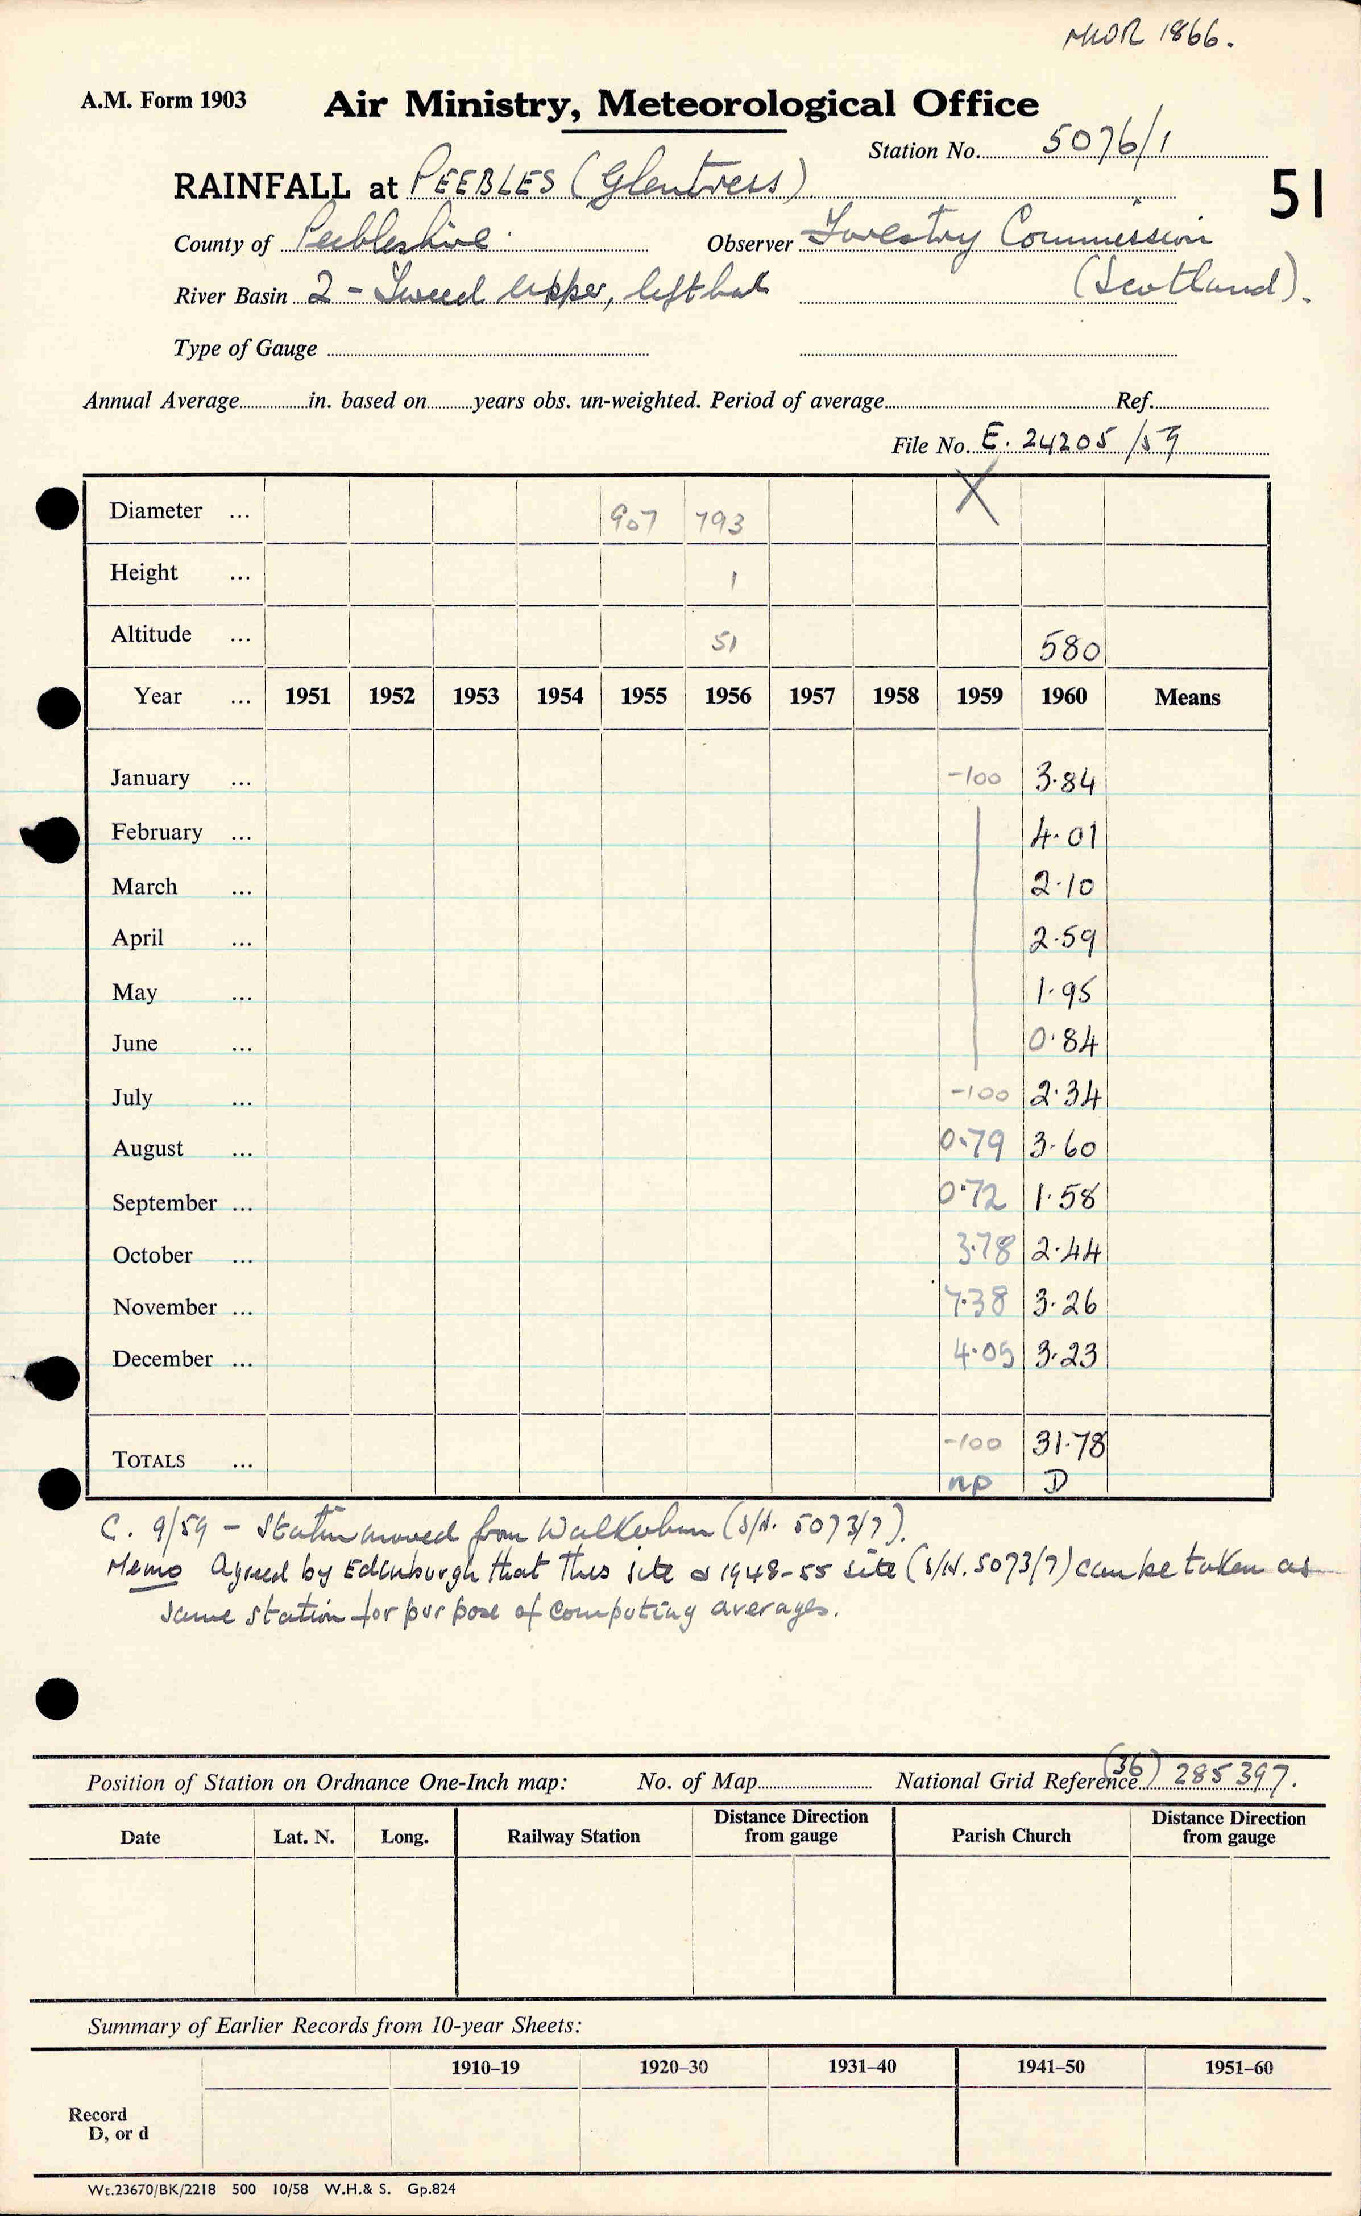 MWR 1866.
A.M. Form 1903 Air Ministry, Meteorological Office
Station No. 5076/1
RAINFALL at PEEBLES (Glentress) 51
County of Peeblesshire. Observer Forestry Commission
River Basin 2 - Tweed upper, left bank (Scotland).
Type of Gauge
Annual Average in. based on years obs. un-weighted. Period of average Ref.
File No. E. 24205/59
X
Diameter ... 907 793
Height ... 1
Altitude ... 51 580
Year ... 1951 1952 1953 1954 1955 1956 1957 1958 1959 1960 Means
January ... -100 3.84
February ... 4.01
March ... 2.10
April ... 2.59
May ... 1.95
June ... 0.84
July ... -100 2.34
August ... 0.79 3.60
September ... 0.72 1.58
October ... 3.78 2.44
November ... 7.38 3.26
December ... 4.05 3.23
TOTALS ... -100 31.78
np D
C. 9/59 - Station moved from Walkerburn (S/N. 5073/7).
Memo Agreed by Edinburgh that this site & 1948-55 site (S/N. 5073/7) can be taken as
same station for purpose of computing averages.
Position of Station on Ordnance One-Inch map: No. of Map National Grid Reference (36) 285 397.
Date Lat. N. Long. Railway Station Distance Direction from gauge Parish Church Distance Direction from gauge
Summary of Earlier Records from 10-year Sheets:
1910–19 1920–30 1931–40 1941–50 1951–60
Record
D, or d
Wt.23670/BK/2218 500 10/58 W.H.& S. Gp.824